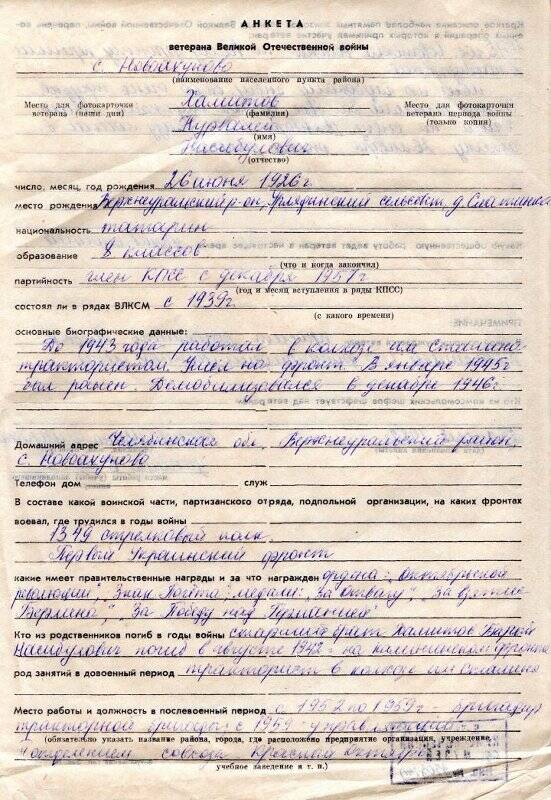 АНКЕТА
ветерана Великой Отечественной войны
с Новоахуново
(наименование населенного пункта района)
Место для фотокарточки
ветерана (наши дни)
Халитов
(фамилии)
Нурвали
(имя)
Насибулович
(отчество)
Место для фотокарточки
ветерана периода войны
(только копия)
число, месяц, год рождения 26 июня 1926 г
место рождения Верхнеуральский р-он, сельсовет, д.
национальность татарин
образование 8 классов
(что и когда закончил)
партийность член КПСС с декабря 1957 г
(год и месяц вступления в ряды КПСС)
состоял ли в рядах ВЛКСМ с 1939 г.
(с какого времени)
основные биографические данные:
До 1943 года работал в колхозе им Сталина
трактористом. Ушел на фронт. В январе 1945 г
был ранен. Демобилизовался в декабре 1946 г.
Домашний адрес Челябинская обл. Верхнеуральский район,
с. Новоахуново
Телефон дом служ
В составе какой воинской части, партизанского отряда, подпольной организации, на каких фронтах
воевал, где трудился в годы войны
1349 стрелковый полк.
Первый Украинский фронт
какие имеет правительственные награды и за что награжден ордена: „Октябрьской
революции", Знак Почета; медали: „За Отвагу", „За взятие
Берлина", „За Победу над Германией"
Кто из родственников погиб в годы войны старший брат Халитов
Насибулович погиб в августе 1942 г на калининском фронте
род занятий в довоенный период тракторист в колхозе им Сталина
Место работы и должность в послевоенный период с 1952 по 1959 г. бригадир
тракторной бригады с 1959 управляющий
(обязательно указать название района, города, где расположено предприятие организация, учреждение,
отделением совхоза Красный Октябрь
учебное заведение и т. п.)